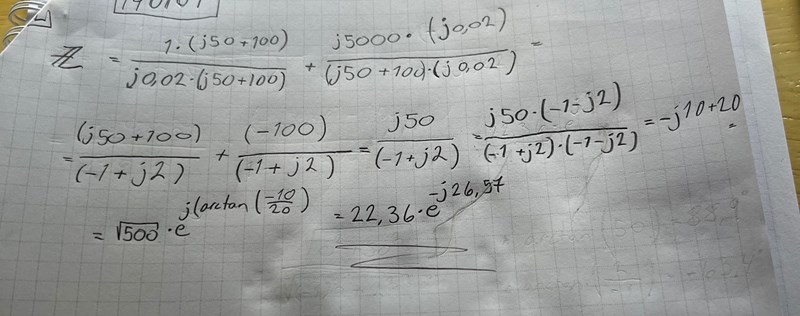 Z = 1·(j50+100) / j0,02·(j50+100) + j5000·(j0,02) / (j50+100)·(j0,02) =
= (j50+100) / (-1+j2) + (-100) / (-1+j2) = j50 / (-1+j2) = j50·(-1-j2) / (-1+j2)·(-1-j2) = -j10+20 =
= √500 · e^j(arctan(-10/20)) = 22,36·e^-j26,57